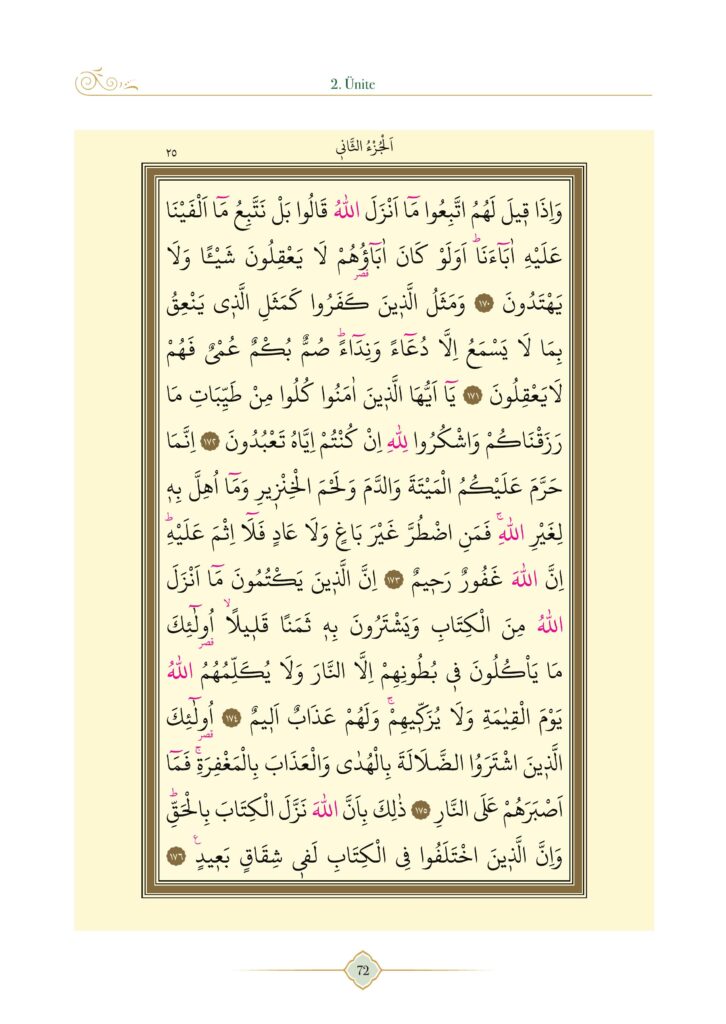 2. Ünite
اَلْجُزْءُ الثَّانٖي
٢٥
وَاِذَا قٖيلَ لَهُمُ اتَّبِعُوا مَٓا اَنْزَلَ اللّٰهُ قَالُوا بَلْ نَتَّبِعُ مَٓا اَلْفَيْنَا
عَلَيْهِ اٰبَٓاءَنَاؕ اَوَلَوْ كَانَ اٰبَٓاؤُ۬هُمْ لَا يَعْقِلُونَ شَيْـًٔا وَلَا
قصر
يَهْتَدُونَ ١٧٠ وَمَثَلُ الَّذٖينَ كَفَرُوا كَمَثَلِ الَّذٖي يَنْعِقُ
بِمَا لَا يَسْمَعُ اِلَّا دُعَٓاءً وَنِدَٓاءًؕ صُمٌّ بُكْمٌ عُمْيٌ فَهُمْ
لَا يَعْقِلُونَ ١٧١ يَٓا اَيُّهَا الَّذٖينَ اٰمَنُوا كُلُوا مِنْ طَيِّبَاتِ مَا
رَزَقْنَاكُمْ وَاشْكُرُوا لِلّٰهِ اِنْ كُنْتُمْ اِيَّاهُ تَعْبُدُونَ ١٧٢ اِنَّمَا
حَرَّمَ عَلَيْكُمُ الْمَيْتَةَ وَالدَّمَ وَلَحْمَ الْخِنْزٖيرِ وَمَٓا اُهِلَّ بِهٖ
لِغَيْرِ اللّٰهِۚ فَمَنِ اضْطُرَّ غَيْرَ بَاغٍ وَلَا عَادٍ فَلَٓا اِثْمَ عَلَيْهِؕ
اِنَّ اللّٰهَ غَفُورٌ رَحٖيمٌ ١٧٣ اِنَّ الَّذٖينَ يَكْتُمُونَ مَٓا اَنْزَلَ
اللّٰهُ مِنَ الْكِتَابِ وَيَشْتَرُونَ بِهٖ ثَمَنًا قَلٖيلًاۙ اُو۬لٰٓئِكَ
قصر
مَا يَأْكُلُونَ فٖي بُطُونِهِمْ اِلَّا النَّارَ وَلَا يُكَلِّمُهُمُ اللّٰهُ
يَوْمَ الْقِيٰمَةِ وَلَا يُزَكّٖيهِمْۚ وَلَهُمْ عَذَابٌ اَلٖيمٌ ١٧٤ اُو۬لٰٓئِكَ
قصر
الَّذٖينَ اشْتَرَوُا الضَّلَالَةَ بِالْهُدٰى وَالْعَذَابَ بِالْمَغْفِرَةِۚ فَمَٓا
اَصْبَرَهُمْ عَلَى النَّارِ ١٧٥ ذٰلِكَ بِاَنَّ اللّٰهَ نَزَّلَ الْكِتَابَ بِالْحَقِّؕ
وَاِنَّ الَّذٖينَ اخْتَلَفُوا فِي الْكِتَابِ لَفٖي شِقَاقٍ بَعٖيدٍ ع ١٧٦
72